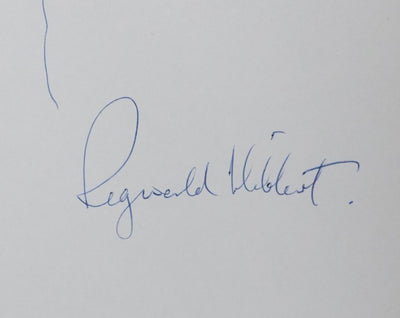 Reginald Hibbert.